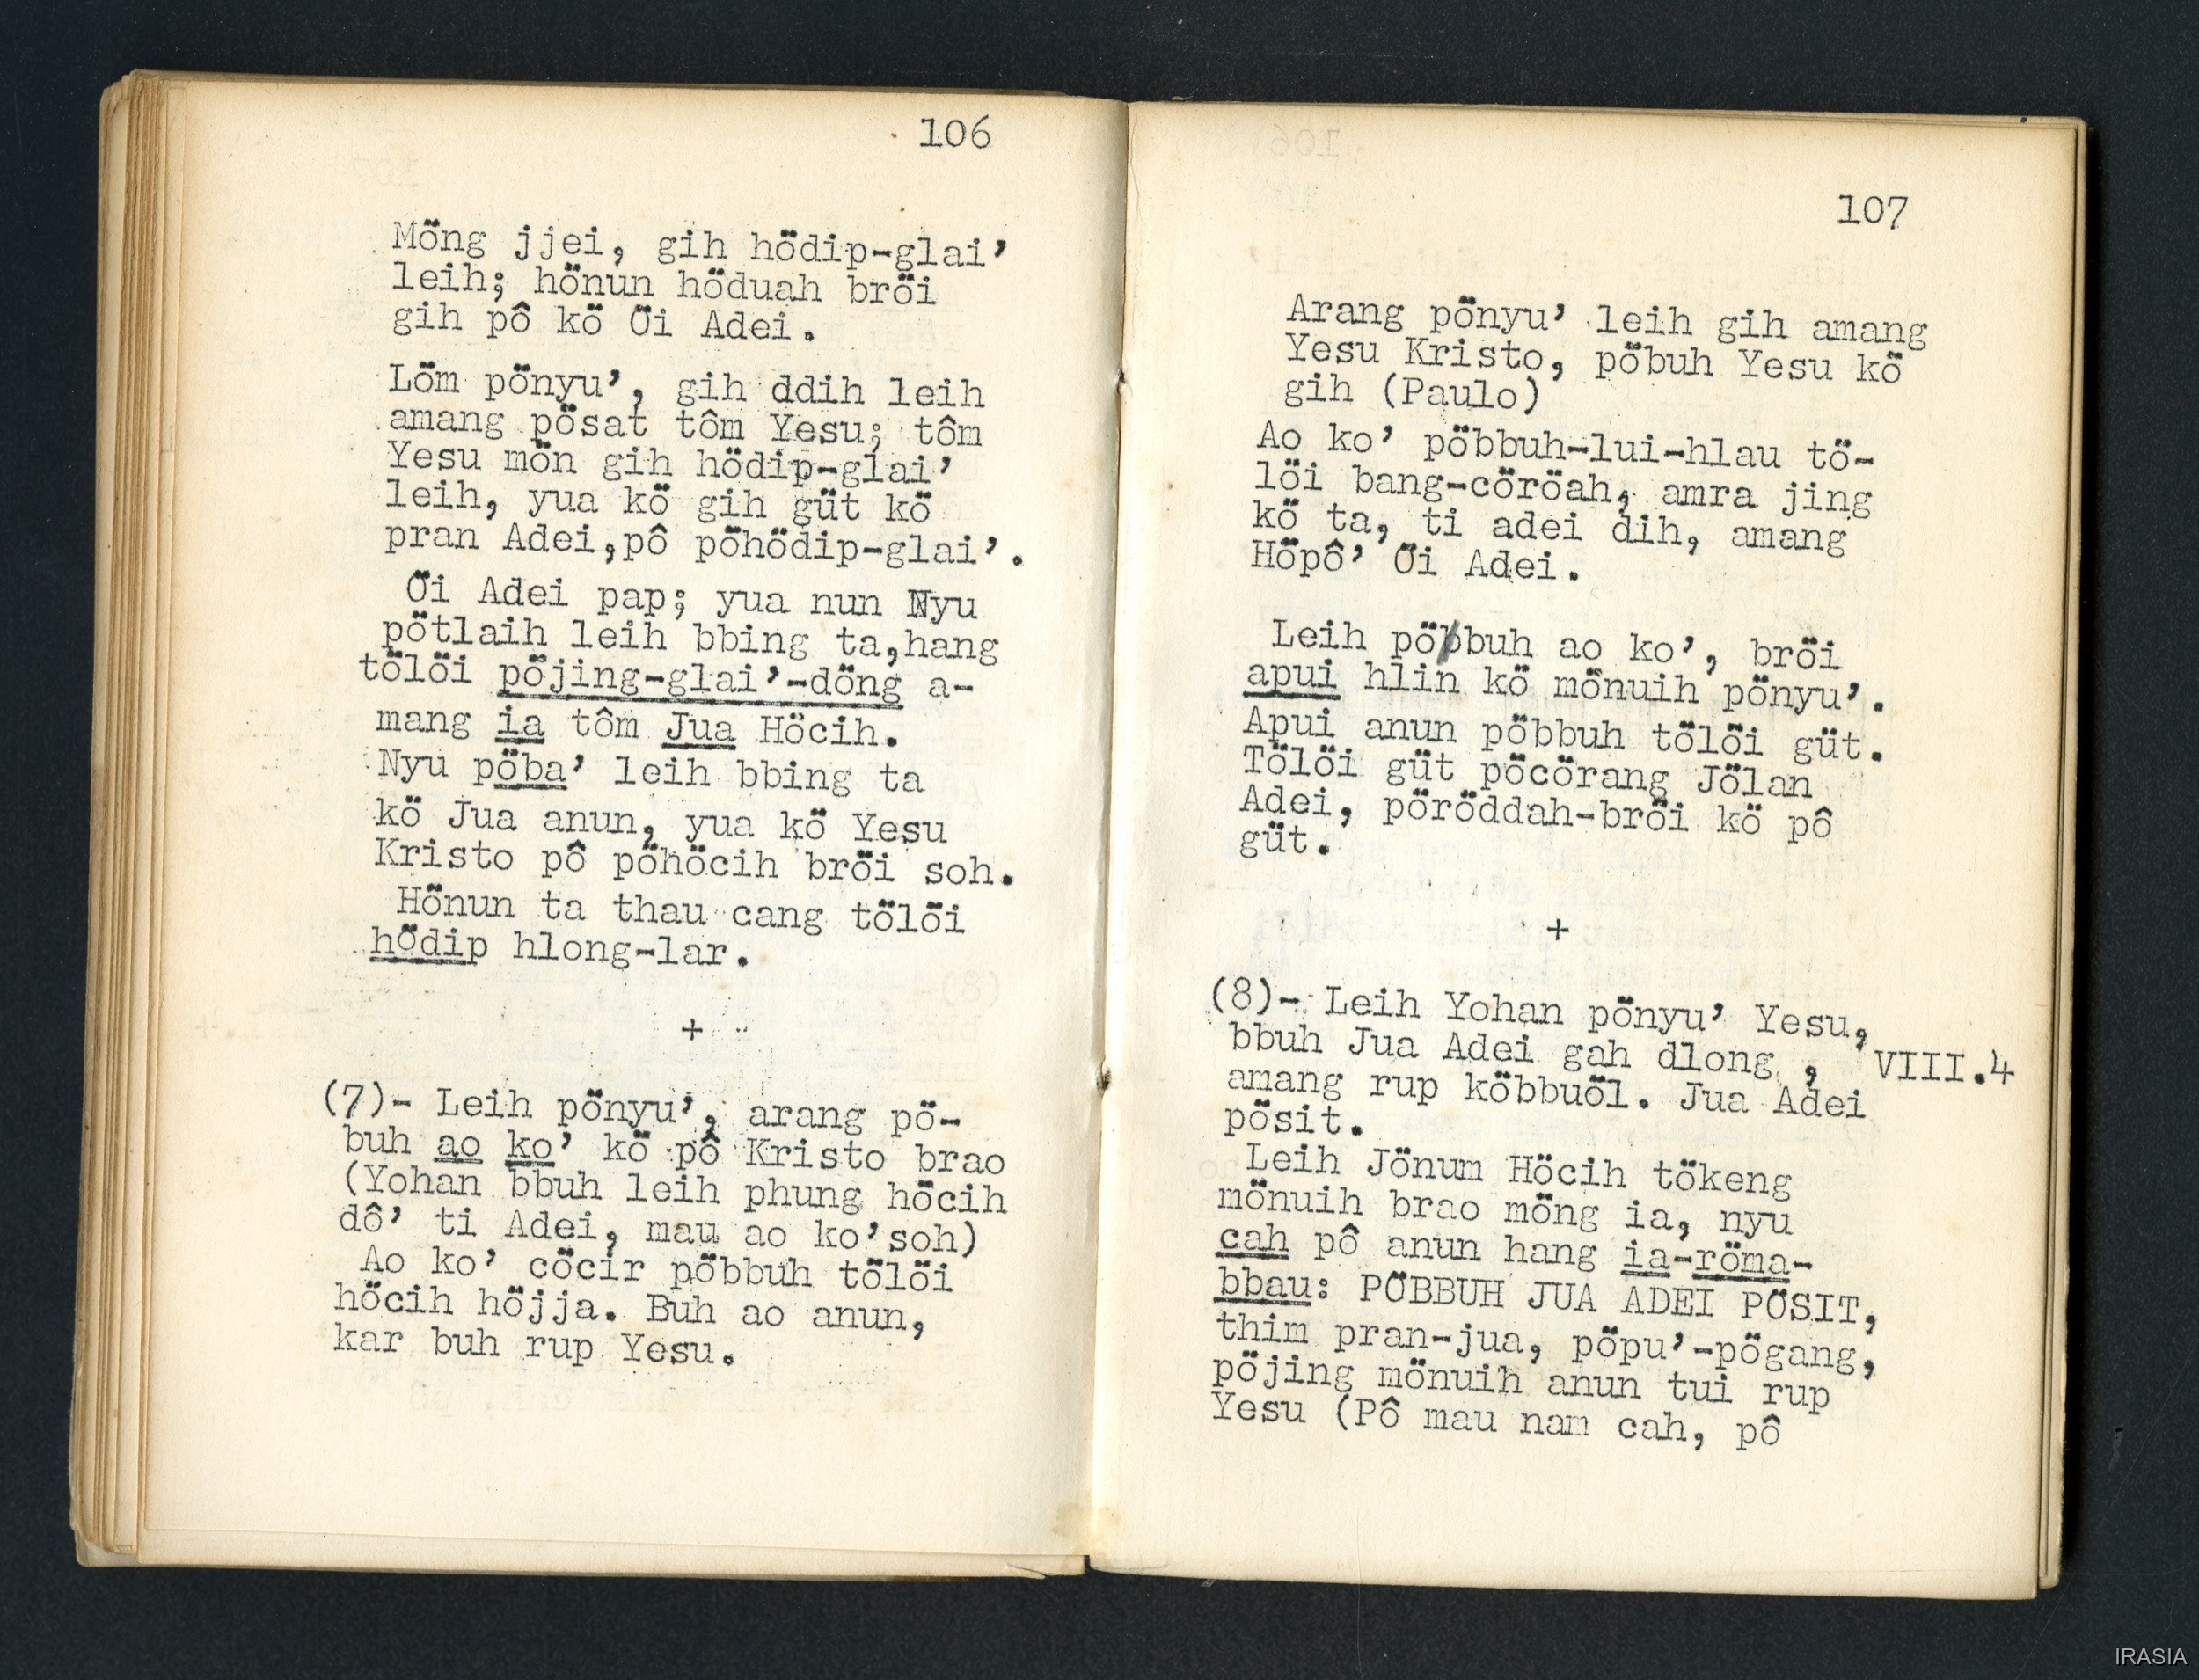 106
Möng jjei, gih hödip-glai'
leih; hönun höduah bröi
gih pô kö Öi Adei.
Löm pönyu', gih ddih leih
amang pösat tôm Yesu; tôm
Yesu mön gih hödip-glai'
leih, yua kö gih güt kö
pran Adei,pô pöhödip-glai'.
Öi Adei pap; yua nun Nyu
pötlaih leih bbing ta,hang
tölöi pöjing-glai'-döng a-
mang ia tôm Jua Höcih.
Nyu pöba' leih bbing ta
kö Jua anun, yua kö Yesu
Kristo pô pöhöcih bröi soh.
Hönun ta thau cang tölöi
hödip hlong-lar.
+
(7)- Leih pönyu', arang pö-
buh ao ko' kö pô Kristo brao
(Yohan bbuh leih phung höcih
dô' ti Adei, mau ao ko'soh)
Ao ko' cöcir pöbbuh tölöi
höcih höjja. Buh ao anun,
kar buh rup Yesu.
107
Arang pönyu' leih gih amang
Yesu Kristo, pöbuh Yesu kö
gih (Paulo)
Ao ko' pöbbuh-lui-hlau tö-
löi bang-cöröah, amra jing
kö ta, ti adei dih, amang
Höpô' Öi Adei.
Leih pöbbuh ao ko', bröi
apui hlin kö mönuih pönyu'.
Apui anun pöbbuh tölöi güt.
Tölöi güt pöcörang Jölan
Adei, pöröddah-bröi kö pô
güt.
+
(8)- Leih Yohan pönyu' Yesu,
bbuh Jua Adei gah dlong , VIII.4
amang rup köbbuöl. Jua Adei
pösit.
Leih Jönum Höcih tökeng
mönuih brao möng ia, nyu
cah pô anun hang ia-röma-
bbau: PÖBBUH JUA ADEI PÖSIT,
thim pran-jua, pöpu'-pögang,
pöjing mönuih anun tui rup
Yesu (Pô mau nam cah, pô
IRASIA